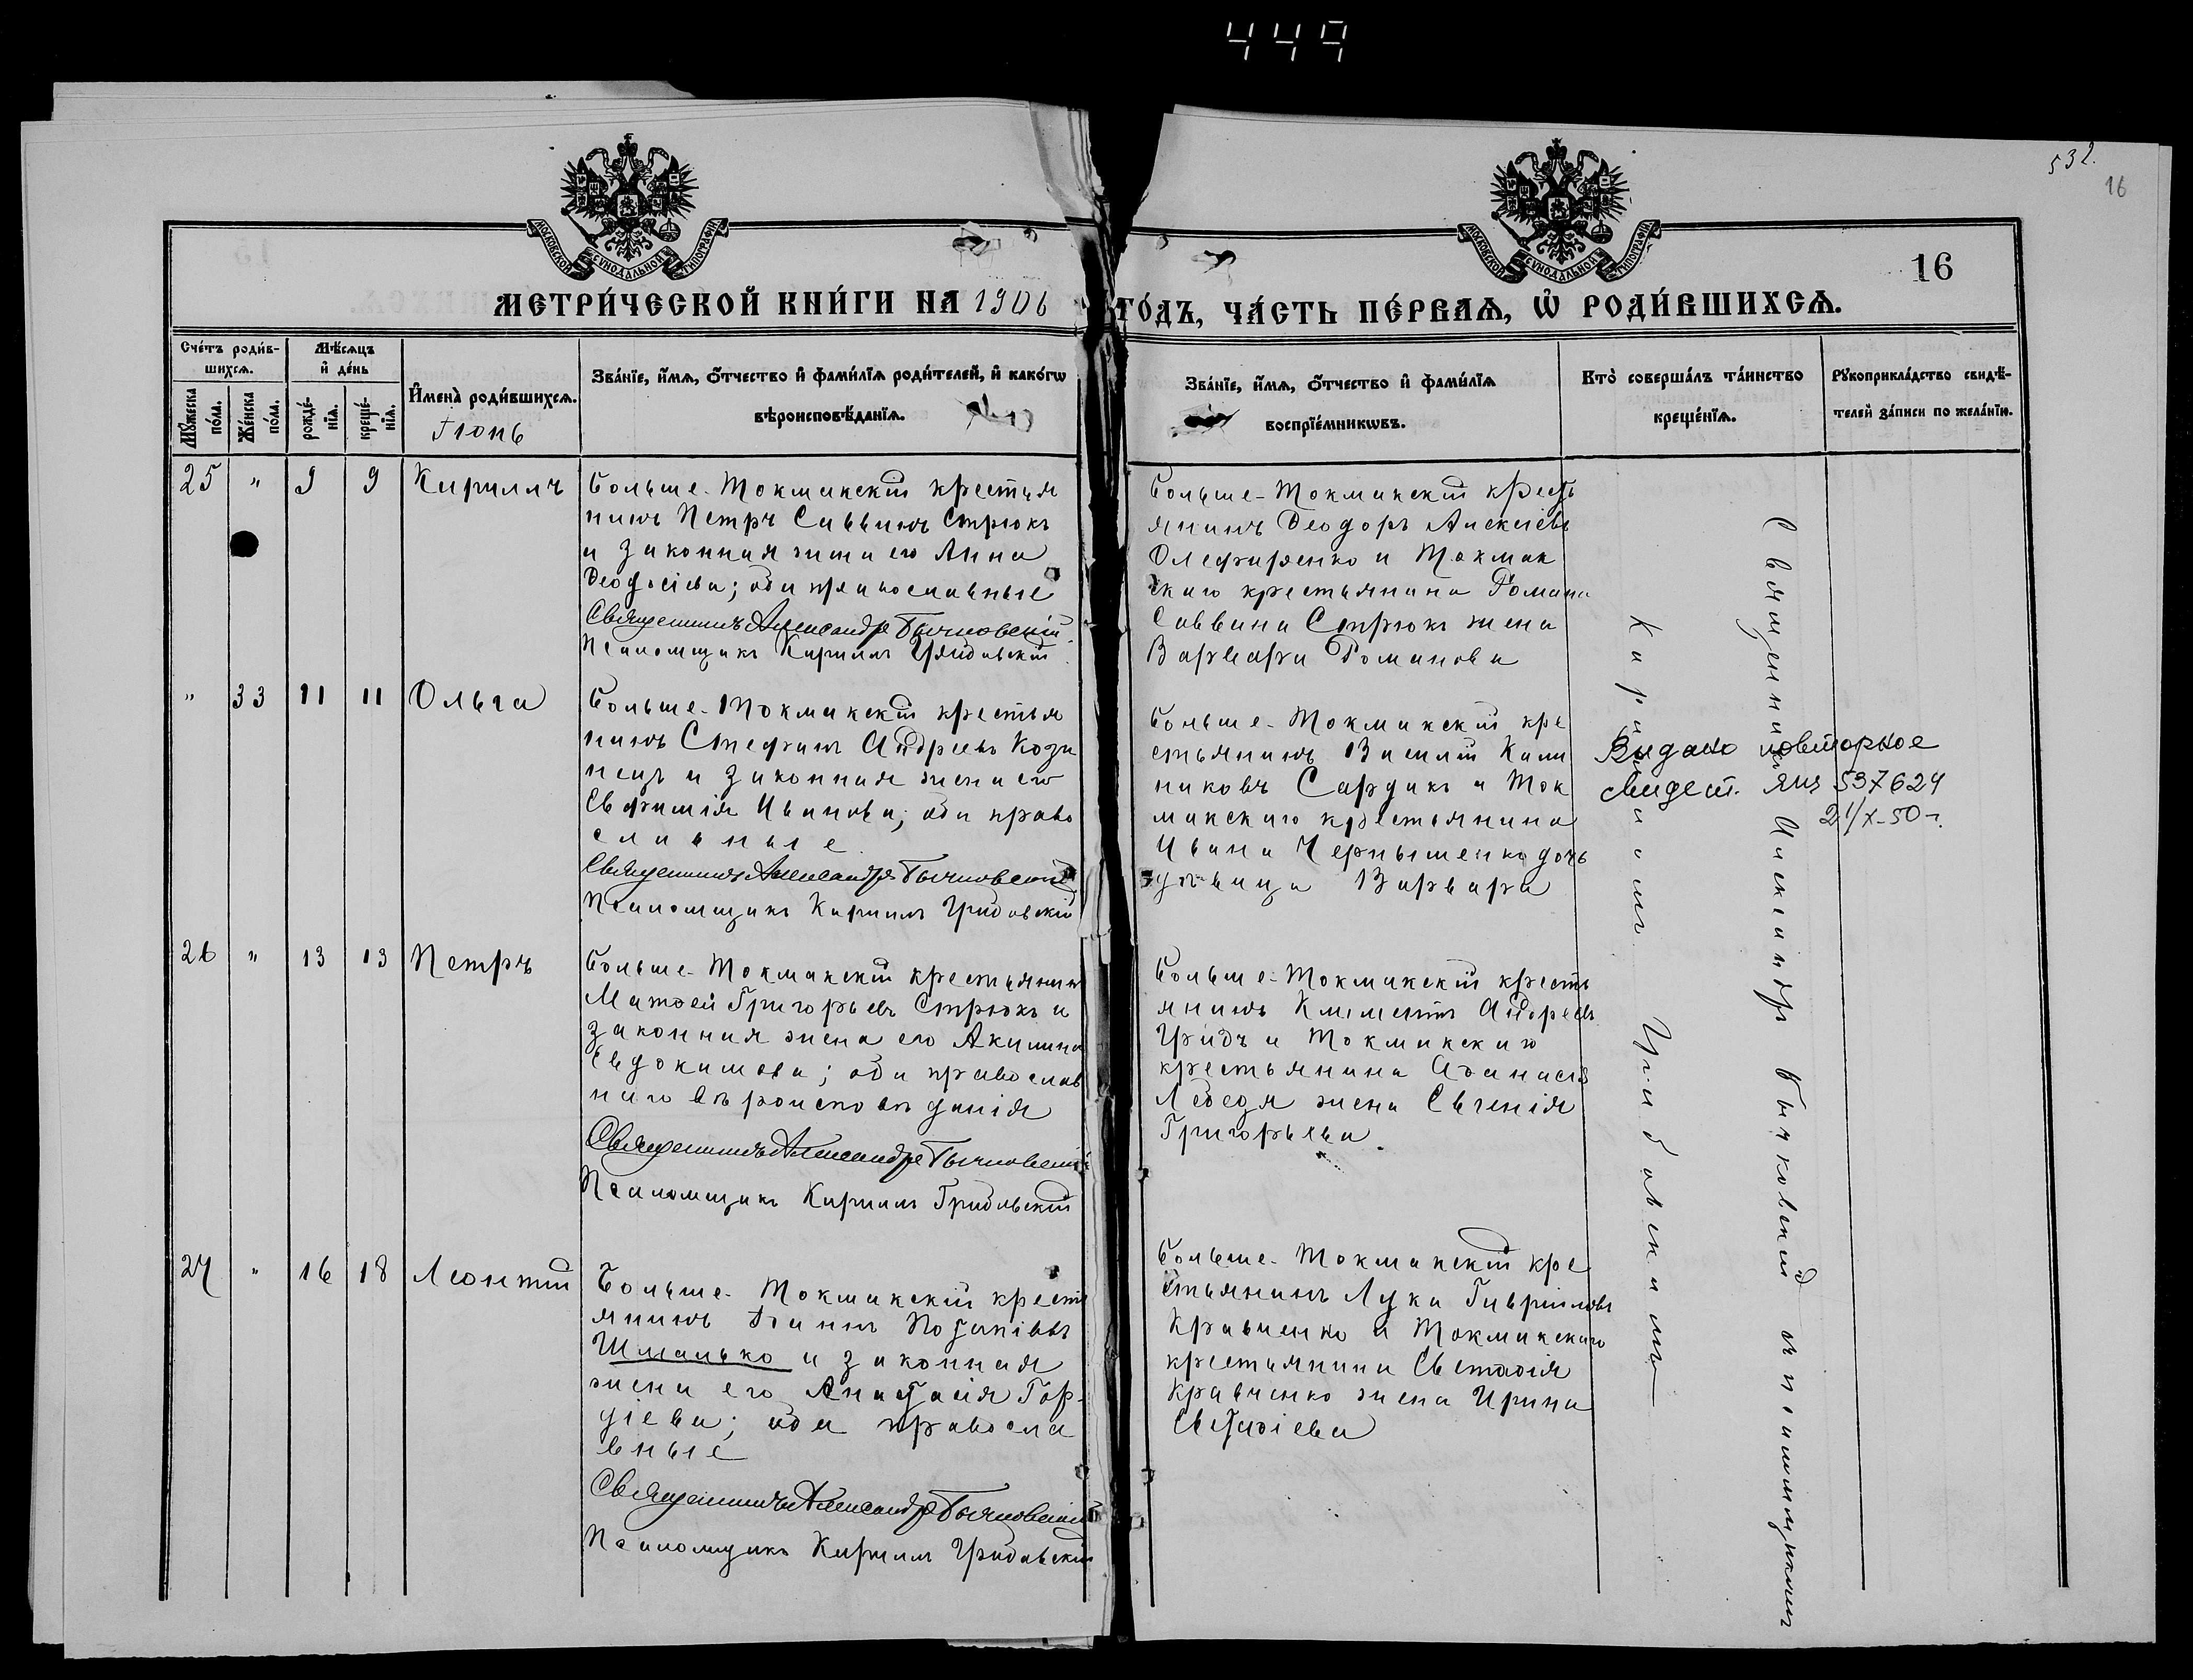 449
532.
16
16
МОСКОВСКОЙ СУНОДАЛЬНОЙ ТИПОГРАФІИ
МОСКОВСКОЙ СУНОДАЛЬНОЙ ТИПОГРАФІИ
МЕТРИ́ЧЕСКОЙ КНИ́ГИ НА 1906 ГО́ДЪ, ЧА́СТЬ ПЕ́РВАѦ, Ѽ РОДИ́ВШИХСѦ.
Сче́тъ роди́в-
шихсѧ.
Мꙋ́жеска по́ла.
Же́нска по́ла.
Мѣ́сѧцъ
и҆ де́нь
рожде́-
нїѧ.
креще́-
нїѧ.
И҆мена̀ роди́вшихсѧ.
Іюнь
Зва́нїе, и҆́мѧ, ѻ҆́тчество и҆ фами́лїѧ роди́телей, и҆ како́гѡ
вѣроисповѣ́данїѧ.
Зва́нїе, и҆́мѧ, ѻ҆́тчество и҆ фами́лїѧ
воспрїе́мникѡвъ.
Кто̀ соверша́лъ та́инство
креще́нїѧ.
Рꙋкоприкла́дство свидѣ́-
телей за́писи по жела́нїю.
25 " 9 9 Кириллъ
Больше-Токмакскій крестья
нинъ Петръ Саввинъ Стрюкъ
и законная жена его Анна
Ѳеодосіева; оба православные
Священникъ Александръ Бычковскій
Псаломщикъ Кириллъ Гридовскій
Больше-Токмакскій кресть
янинъ Ѳеодоръ Алексіевъ
Олефиренко и Токмак
скаго крестьянина Романа
Саввина Стрюкъ жена
Варвара Романова
" 33 11 11 Ольга
Больше-Токмакскій крестья
нинъ Стефанъ Андреевъ Коза
нецъ и законная жена его
Евфимія Иванова; оба право
славные
Священникъ Александръ Бычковскій
Псаломщикъ Кириллъ Гридовскій
Больше-Токмакскій кре
стьянинъ Василій Кали
никовъ Сардакъ и Ток
макскаго крестьянина
Ивана Чернышенко дочь
дѣвица Варвара
Видано повторное
свидет. ЯЦ 537624
21/X-50 г.
26 " 13 13 Петръ
Больше-Токмакскій крестьянинъ
Матѳей Григорьевъ Стрюкъ и
законная жена его Акилина
Евдокимова; оба православ
наго вѣроисповѣданія
Священникъ Александръ Бычковскій
Псаломщикъ Кириллъ Гридовскій
Больше-Токмакскій кресть
янинъ Климентъ Андреевъ
Гридъ и Токмакскаго
крестьянина Аѳанасія
Лебедя жена Евгенія
Григорьева.
27 " 16 18 Леонтій
Больше-Токмакскій кресть
янинъ Іоаннъ Потапіевъ
Шмалько и законная
жена его Анастасія Гор-
діева; оба правосла
вные
Священникъ Александръ Бычковскій
Псаломщикъ Кириллъ Гридовскій
Больше-Токмакскій кре
стьянинъ Лука Гавріиловъ
Кравченко и Токмакскаго
крестьянина Евстафія
Кравченко жена Ирина
Евстафіева
Священникъ Александръ Бычковскій съ псаломщикомъ
Кирилломъ Гридовскимъ